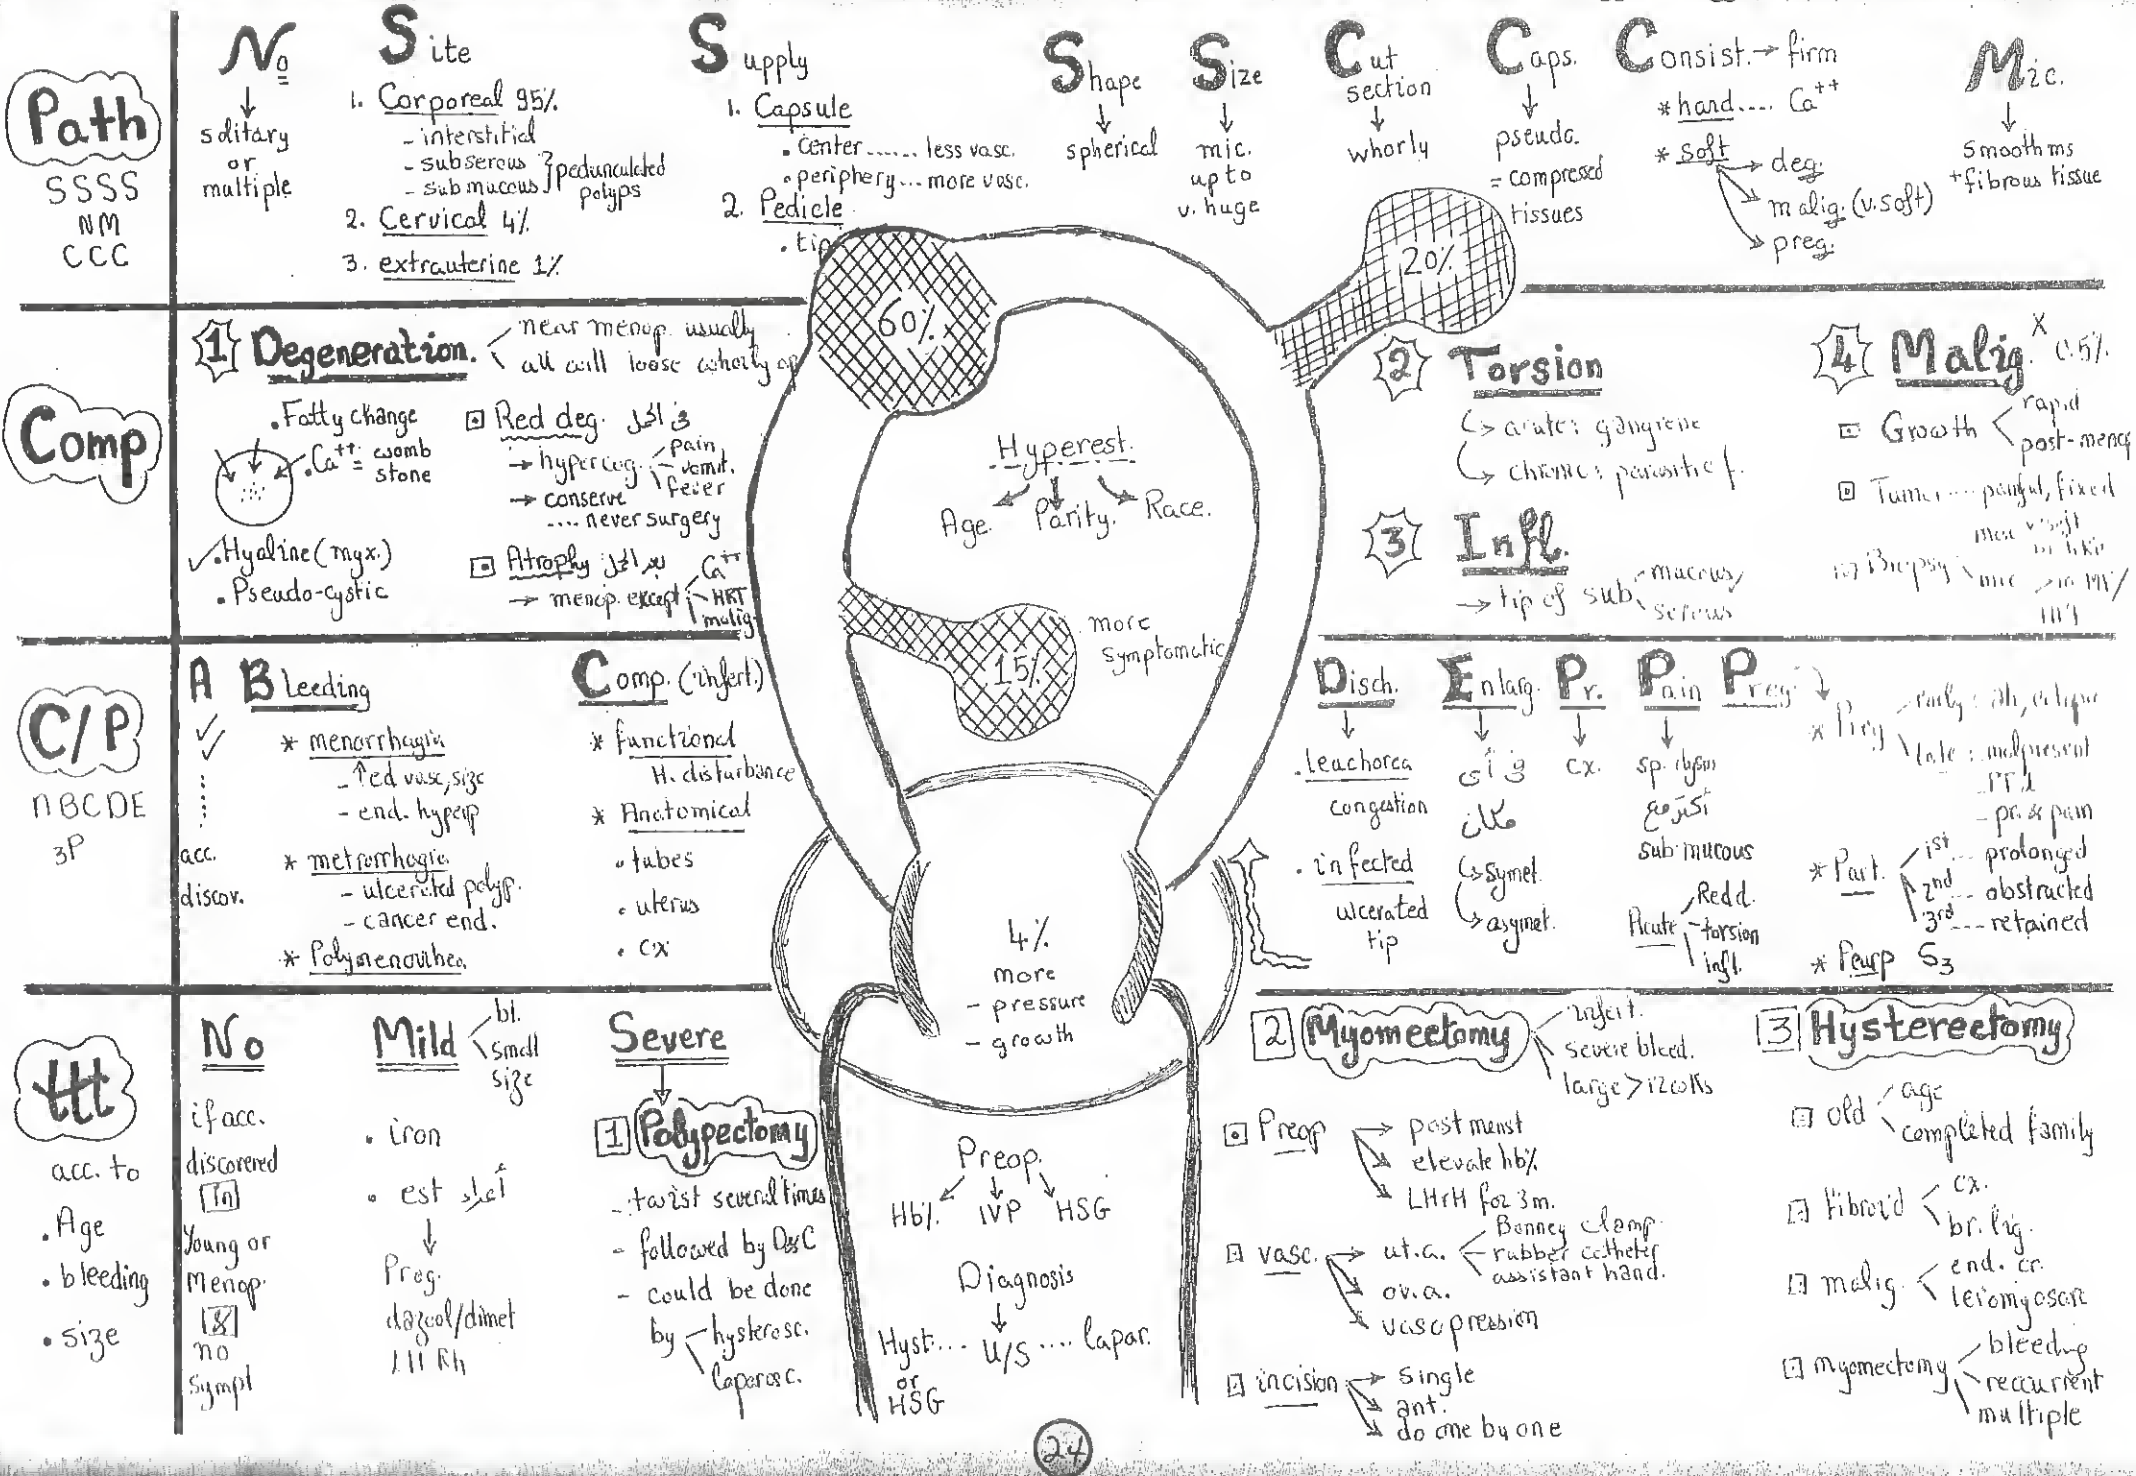 Path
SSSS
NM
CCC
No
solitary
or
multiple
Site
1. Corporeal 95%
- interstitial
- subserous } pedunculated
- submucous } polyps
2. Cervical 4%
3. extrauterine 1%
Supply
1. Capsule
. center ...... less vasc.
. periphery ... more vasc.
2. Pedicle
. tip
Shape
spherical
Size
mic.
up to
v. huge
Cut
section
whorly
Caps.
pseudo.
= compressed
tissues
Consist. → firm
* hard .... Ca++
* soft → deg.
malig. (v. soft)
preg.
Mic.
smooth ms
+ fibrous tissue
Comp
1 Degeneration.
near menop. usually
all will loose whorly ap
. Fatty change
. Ca++ = womb
stone
✓. Hyaline (myx.)
. Pseudo-cystic
Red deg.
→ hypercog.
pain
vomit.
fever
→ conserve
.... never surgery
Atrophy
→ menop. except
Ca++
HRT
malig.
60%
20%
15%
Hyperest.
Age. Parity. Race.
more
symptomatic
2 Torsion
acute: gangrene
chronic: parasitic f.
3 Infl.
→ tip of sub
mucous
serous
4 Malig. x 0.5%
Growth
rapid
post-menop
Tumor .... painful, fixed
Biopsy
mic
C/P
ABCDE
3P
A
acc.
discov.
Bleeding
* menorrhagia
- ↑ed vasc, size
- end. hyperp
* metrorrhagia
- ulcerated polyp.
- cancer end.
* Polymenorrhea
Comp. (infert.)
* functional
H. disturbance
* Anatomical
. tubes
. uterus
. cx
4%
more
- pressure
- growth
Disch.
. leuchorea
congestion
. infected
ulcerated
tip
Enlarg.
في أى
مكان
symet.
asymet.
Pr.
cx.
Pain
أكثر مع
submucous
Acute
Red d.
torsion
infl.
Preg.
* Preg
late: malpresent
PTL
- pr. & pain
* Part.
1st ... prolonged
2nd ... obstructed
3rd ... retained
* Peurp S3
ttt
acc. to
. Age
. bleeding
. size
No
if acc.
discovered
in
Young or
Menop.
&
no
sympt
Mild
bl.
small
size
. iron
. est أعداء
Prog.
Severe
1 Polypectomy
- twist several times
- followed by D&C
- could be done
by hysterosc.
laparosc.
Preop.
Hb%. IVP HSG
Diagnosis
Hyst... U/S .... lapar.
or
HSG
2 Myomectomy
infert.
severe bleed.
large > 12 wks
Preop → post menst
elevate hb%
LHRH for 3m.
vasc. → ut.a.
Bonney clamp.
rubber catheter
assistant hand.
ov.a.
vasopression
incision → single
ant.
do one by one
3 Hysterectomy
old
age
completed family
fibroid
cx.
br. lig.
malig.
end. cr.
leiomyosarc
myomectomy
bleeding
reccurrent
multiple
24